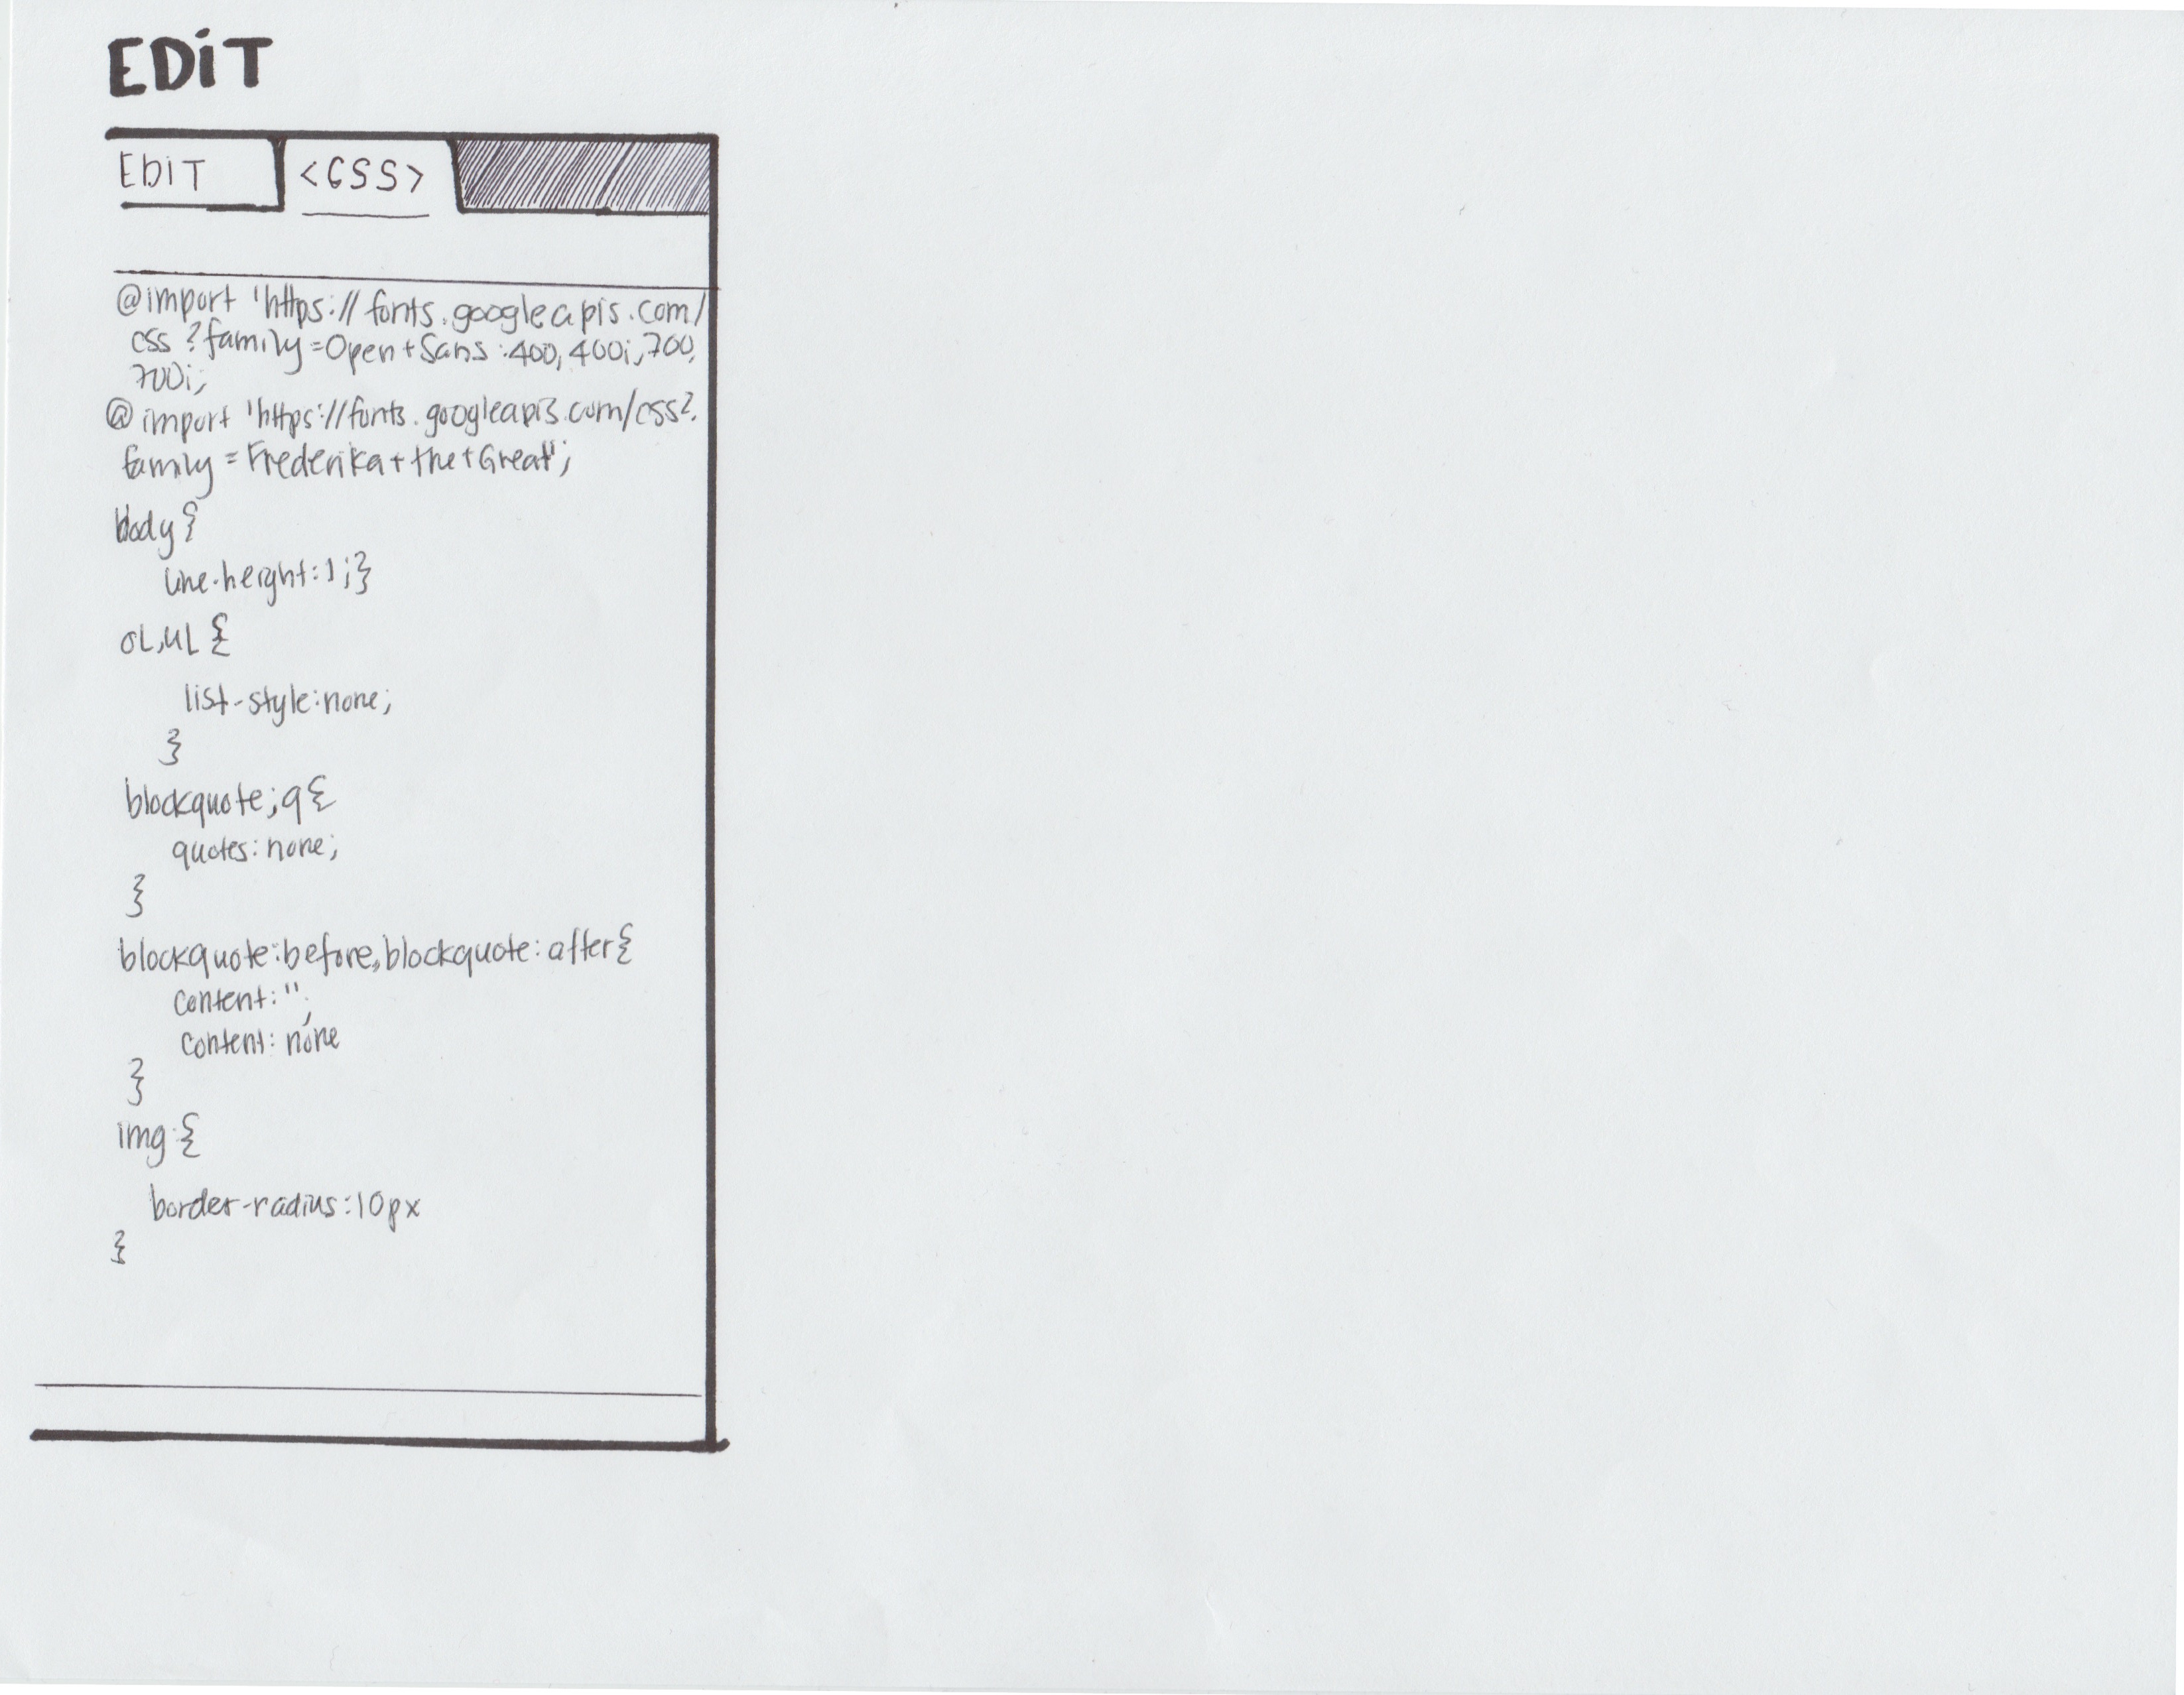 EDiT
EDiT <CSS>
@import 'https://fonts.googleapis.com/
css?family=Open+Sans:400,400i,700,
700i;
@import 'https://fonts.googleapis.com/css?
family=Frederika+the+Great';
body{
line-height:1;}
oL,uL{
list-style:none;
}
blockquote;q{
quotes:none;
}
blockquote:before,blockquote:after{
content:'';
content: none
}
img{
border-radius:10px
}